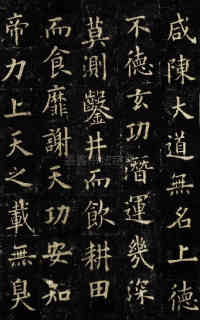 咸陳大道無名上德
不德玄功潛運幾深
莫測鑿井而飲耕田
而食靡謝天功安知
帝力上天之載無臭